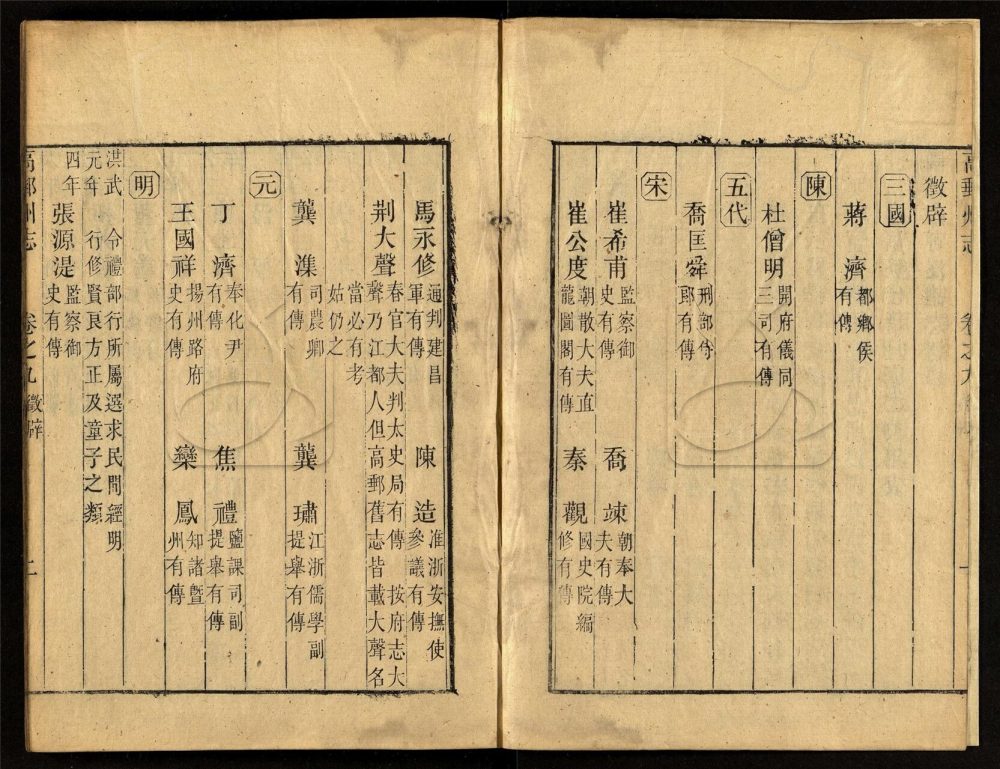 高郵州志
卷之九
一
徵辟
三國
蔣濟 都鄉侯有傳
陳
杜僧明 開府儀同三司有傳
五代
喬匡舜 刑部侍郎有傳
宋
崔希甫 監察御史有傳 喬竦 朝奉大夫有傳
崔公度 朝散大夫直龍圖閣有傳 秦觀 國史院編修有傳
馬永修 通判建昌軍有傳 陳造 淮浙安撫使參議有傳
荆大聲 春官大夫判太史局有傳 按府志大聲乃江都人但高郵舊志皆載大聲名
當必有考姑仍之
龔漅 司農卿有傳 龔璛 江浙儒學副提舉有傳
元
丁濟 奉化尹有傳 焦禮 鹽課司副提舉有傳
王國祥 揚州路府史有傳 欒鳳 知諸暨州有傳
明
洪武元年 令禮部行所屬選求民間經明行修賢良方正及童子之類
四年 張源湜 監察御史有傳
高郵州志
卷之九 徵辟
二